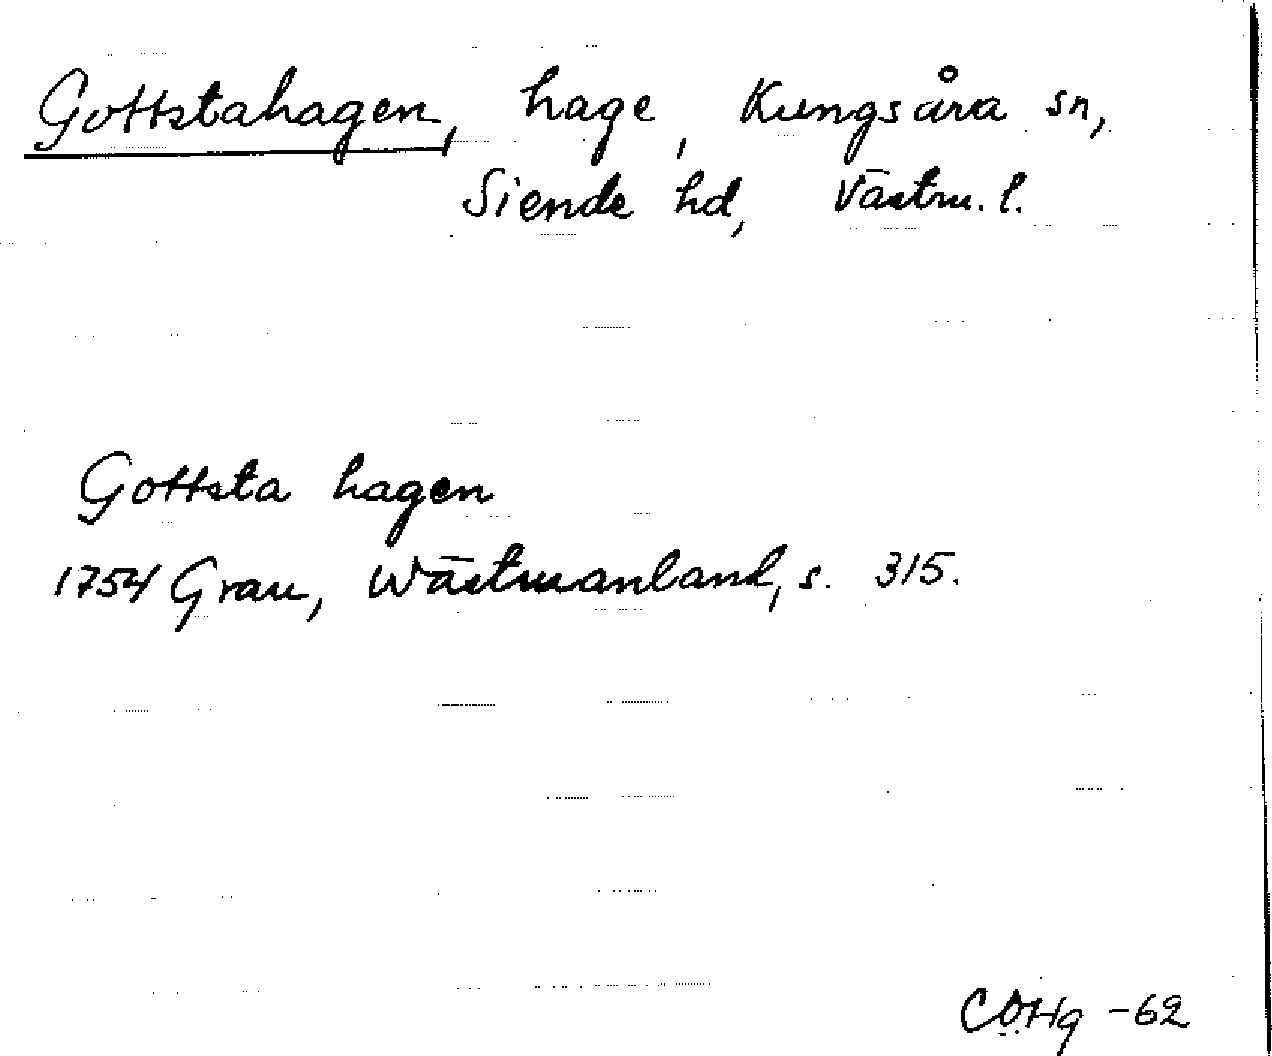 Gottstahagen, hage, Kungsåra sn,
Siende hd, Västm. l.
Gottsta hagen
1754 Grau, Wästmanland, s. 315.
CÖHg -62